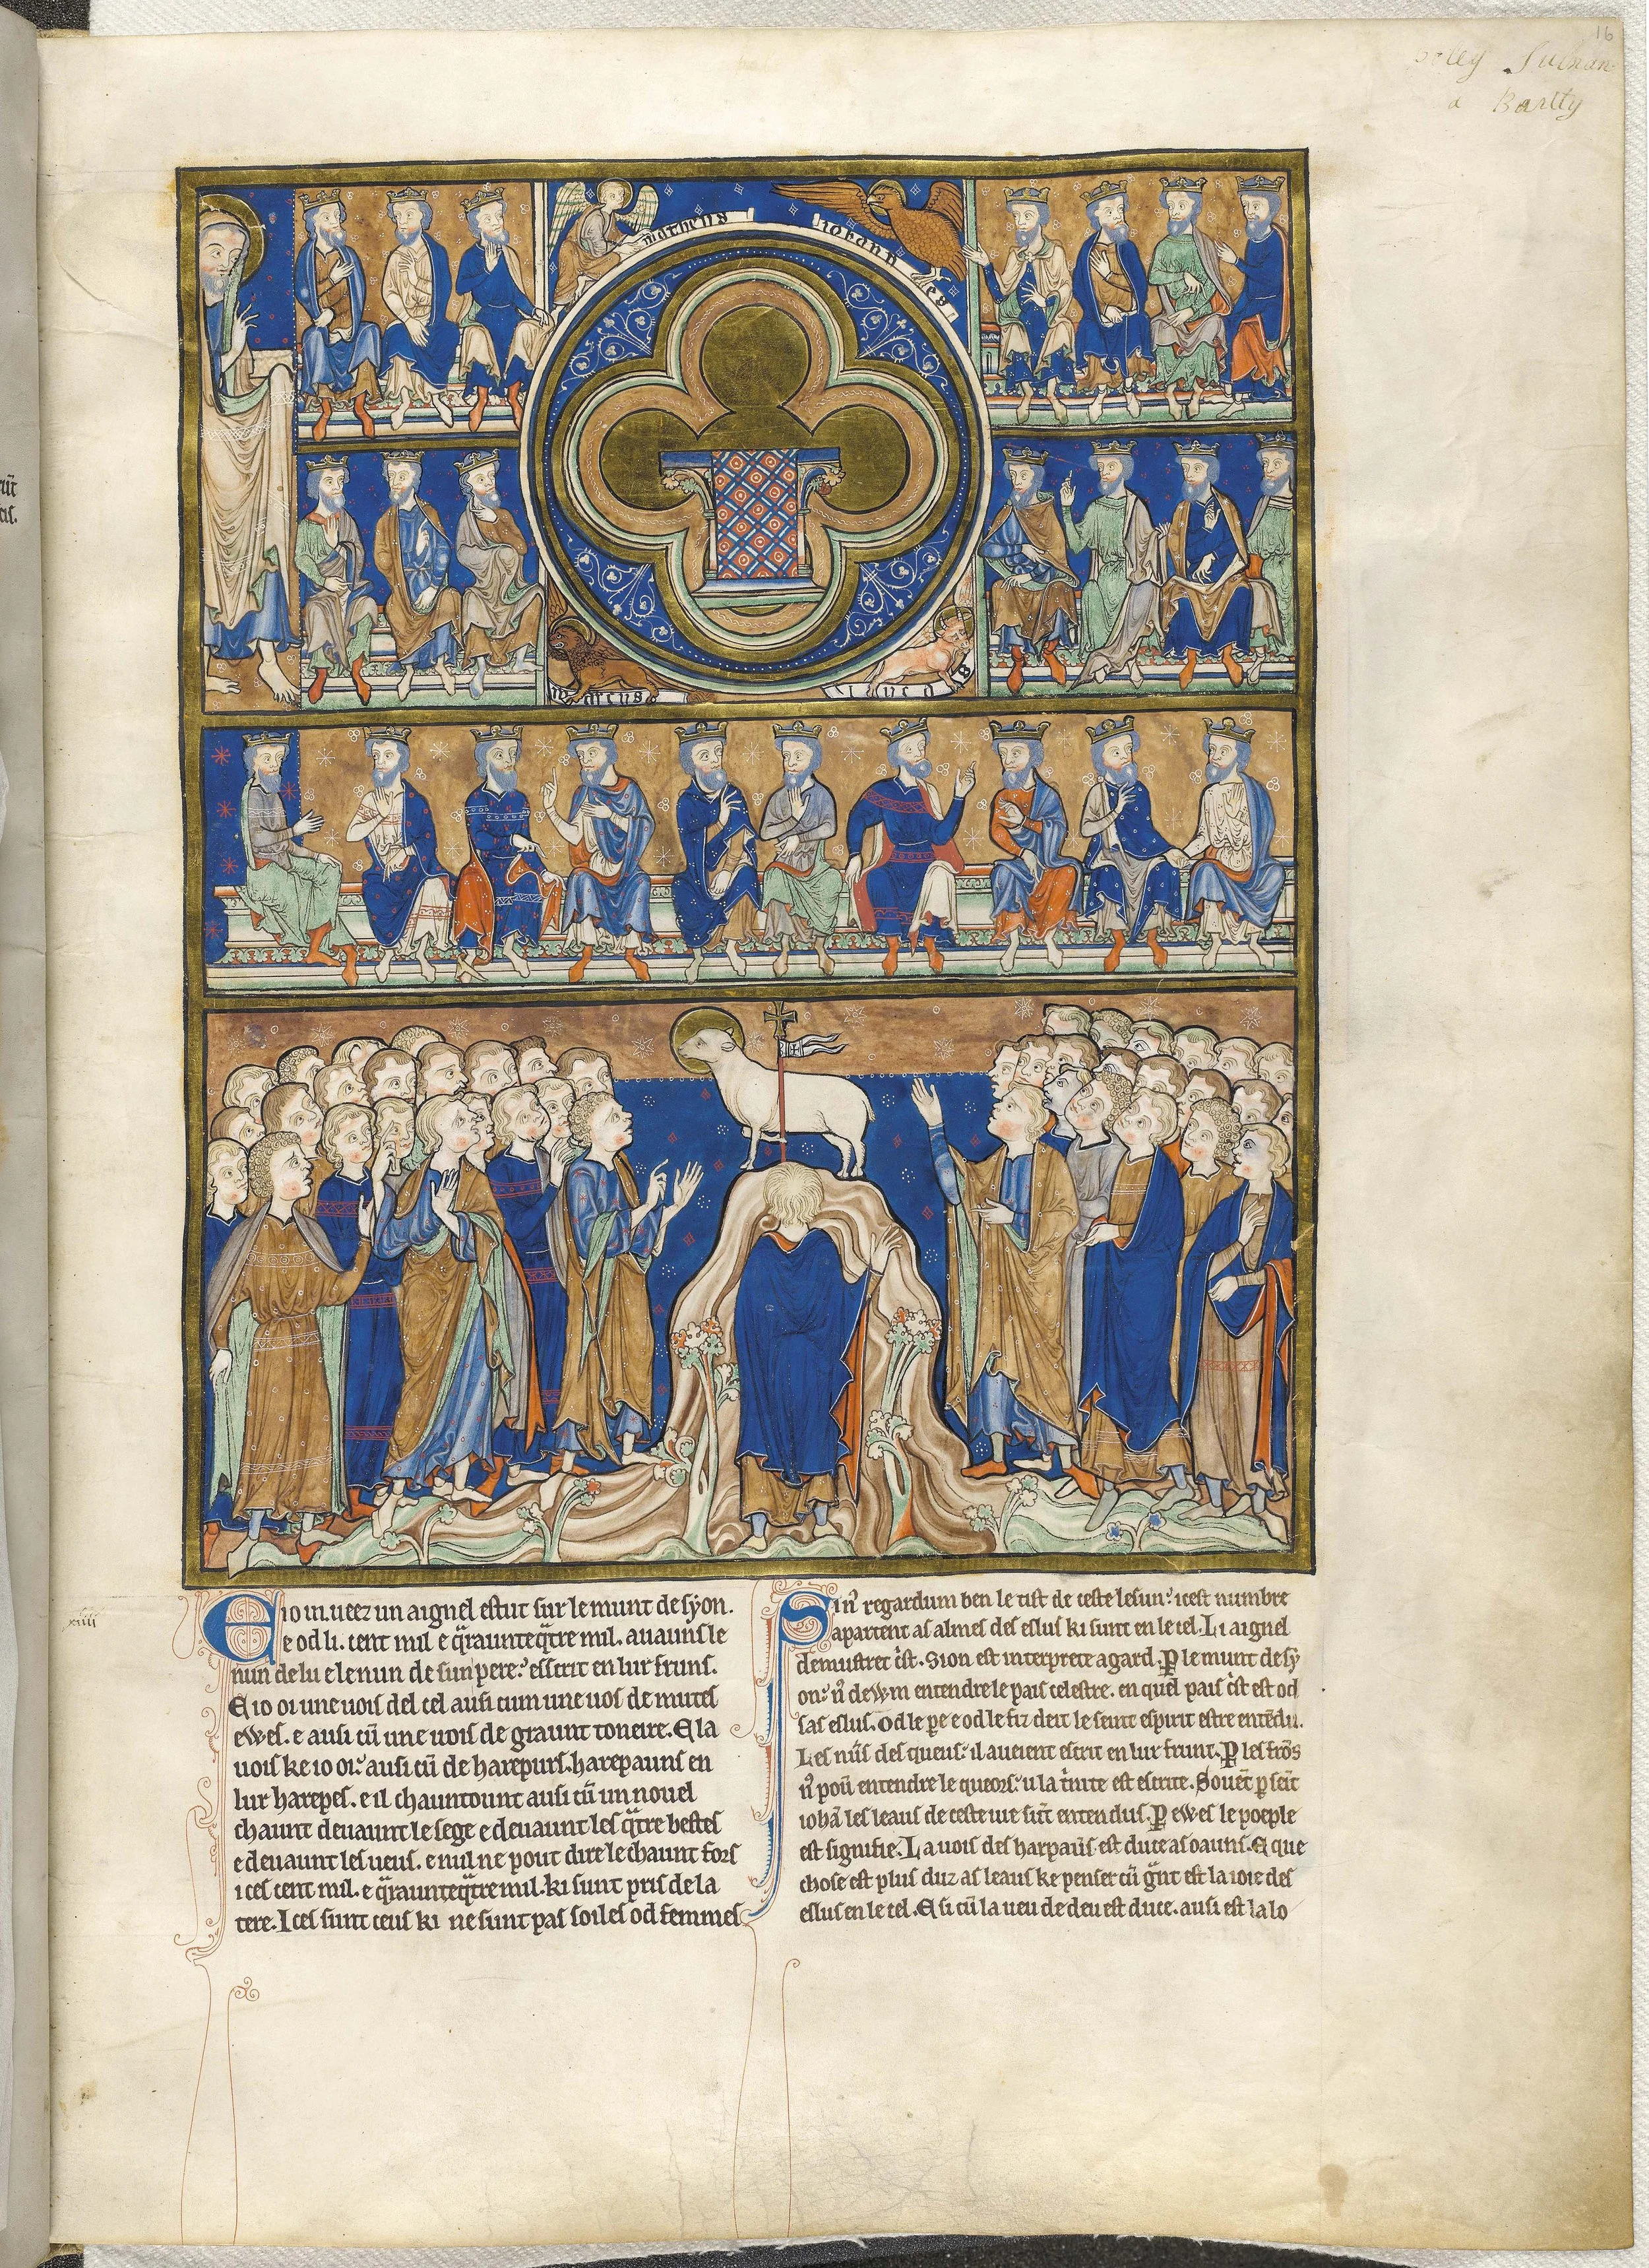 16
a Bartty
matheus
iohannes
marcus
lucas
xiiii
E io m. ueez un aignel estut sur le munt de syon.
e od li. cent mil e q̄raunteq̄tre mil. auauns le
nun de lu e le nun de sun pere.' esscrit en lur fruns.
E io oi une uois del cel ausi cum une uos de mutes
ewes. e ausi cū une uois de graunt toneire. E la
uois ke io oi.' ausi cū de harepurs. harepauns en
lur harepes. e il chauntount ausi cū un nouel
chaunt deuaunt le sege e deuaunt les q̄tre bestes
e deuaunt les ueus. e nul ne pout dire le chaunt fors
ices cent mil. e q̄raunteq̄tre mil. ki sunt pris de la
tere. Ices sunt ceus ki ne sunt pas soiles od femmes
Si n̄ regardum ben le tist de ceste lesun.' icest numbre
apartent as almes des eslus ki sunt en le cel. Li aignel
demustret c̄st. Sion est interprete agard. P̱ le munt de sy
on.' n̄ dewm entendre le pais celestre. en quel pais c̄st est od
sas eslus. Od le p̱e e od le fiz deit le seint espirit estre entēdu.
Les nūs des queus.' il aueient escrit en lur frunt. P̱ les frōs
n̄ poū entendre le queors.' u la t̄nite est escrite. Souēt p̱ seīt
iohā les leaus de ceste uie sūt entendus. P̱ ewes le poeple
est signifie. La uois des harpaūs est duce as oauns. E que
chose est plus duz as leaus ke penser cū ḡnt est la ioie des
eslus en le cel. E si cū la ueu de deu est duce. ausi est la lo